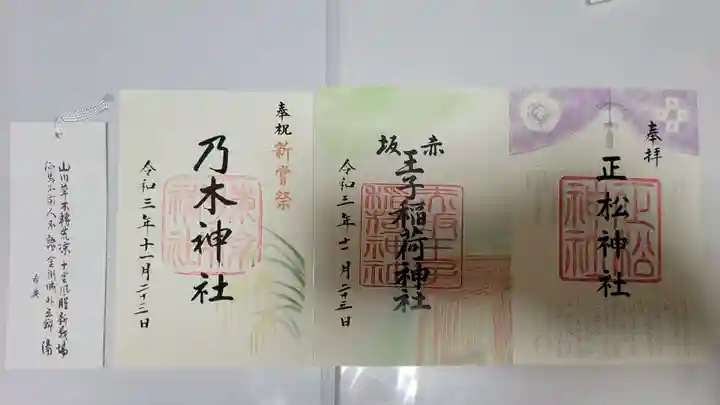 奉拝
正松神社
赤坂
王子稲荷神社
令和三年十一月二十三日
奉祝
新嘗祭
乃木神社
令和三年十一月二十三日
山川草木轉荒凉十里風腥新戰場
征馬不前人不語金州城外立斜陽
希典